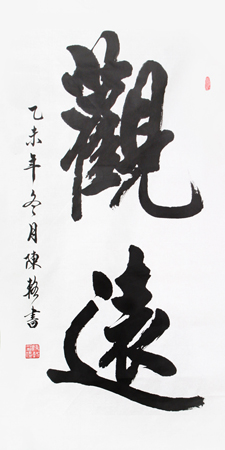 觀遠
乙未年冬月陳毅書